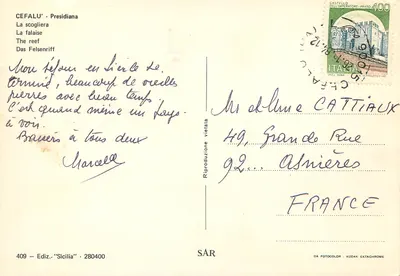 CEFALU' - Presidiana
La scogliera
La falaise
The reef
Das Felsenriff
Mon séjour en Sicile se
termine, beaucoup de vieilles
pierres avec beau temps
C'est quand même un pays
à voir.
Baisers à tous deux
Marcelle
400
ITALIA
CEFALU (PA)
M et Mme CATTIAUX
49, Grande Rue
92... Asnières
FRANCE
Riproduzione vietata
409 - Ediz. "Sicilia" - 280400
SAR
DA FOTOCOLOR - KODAK EKTACHROME